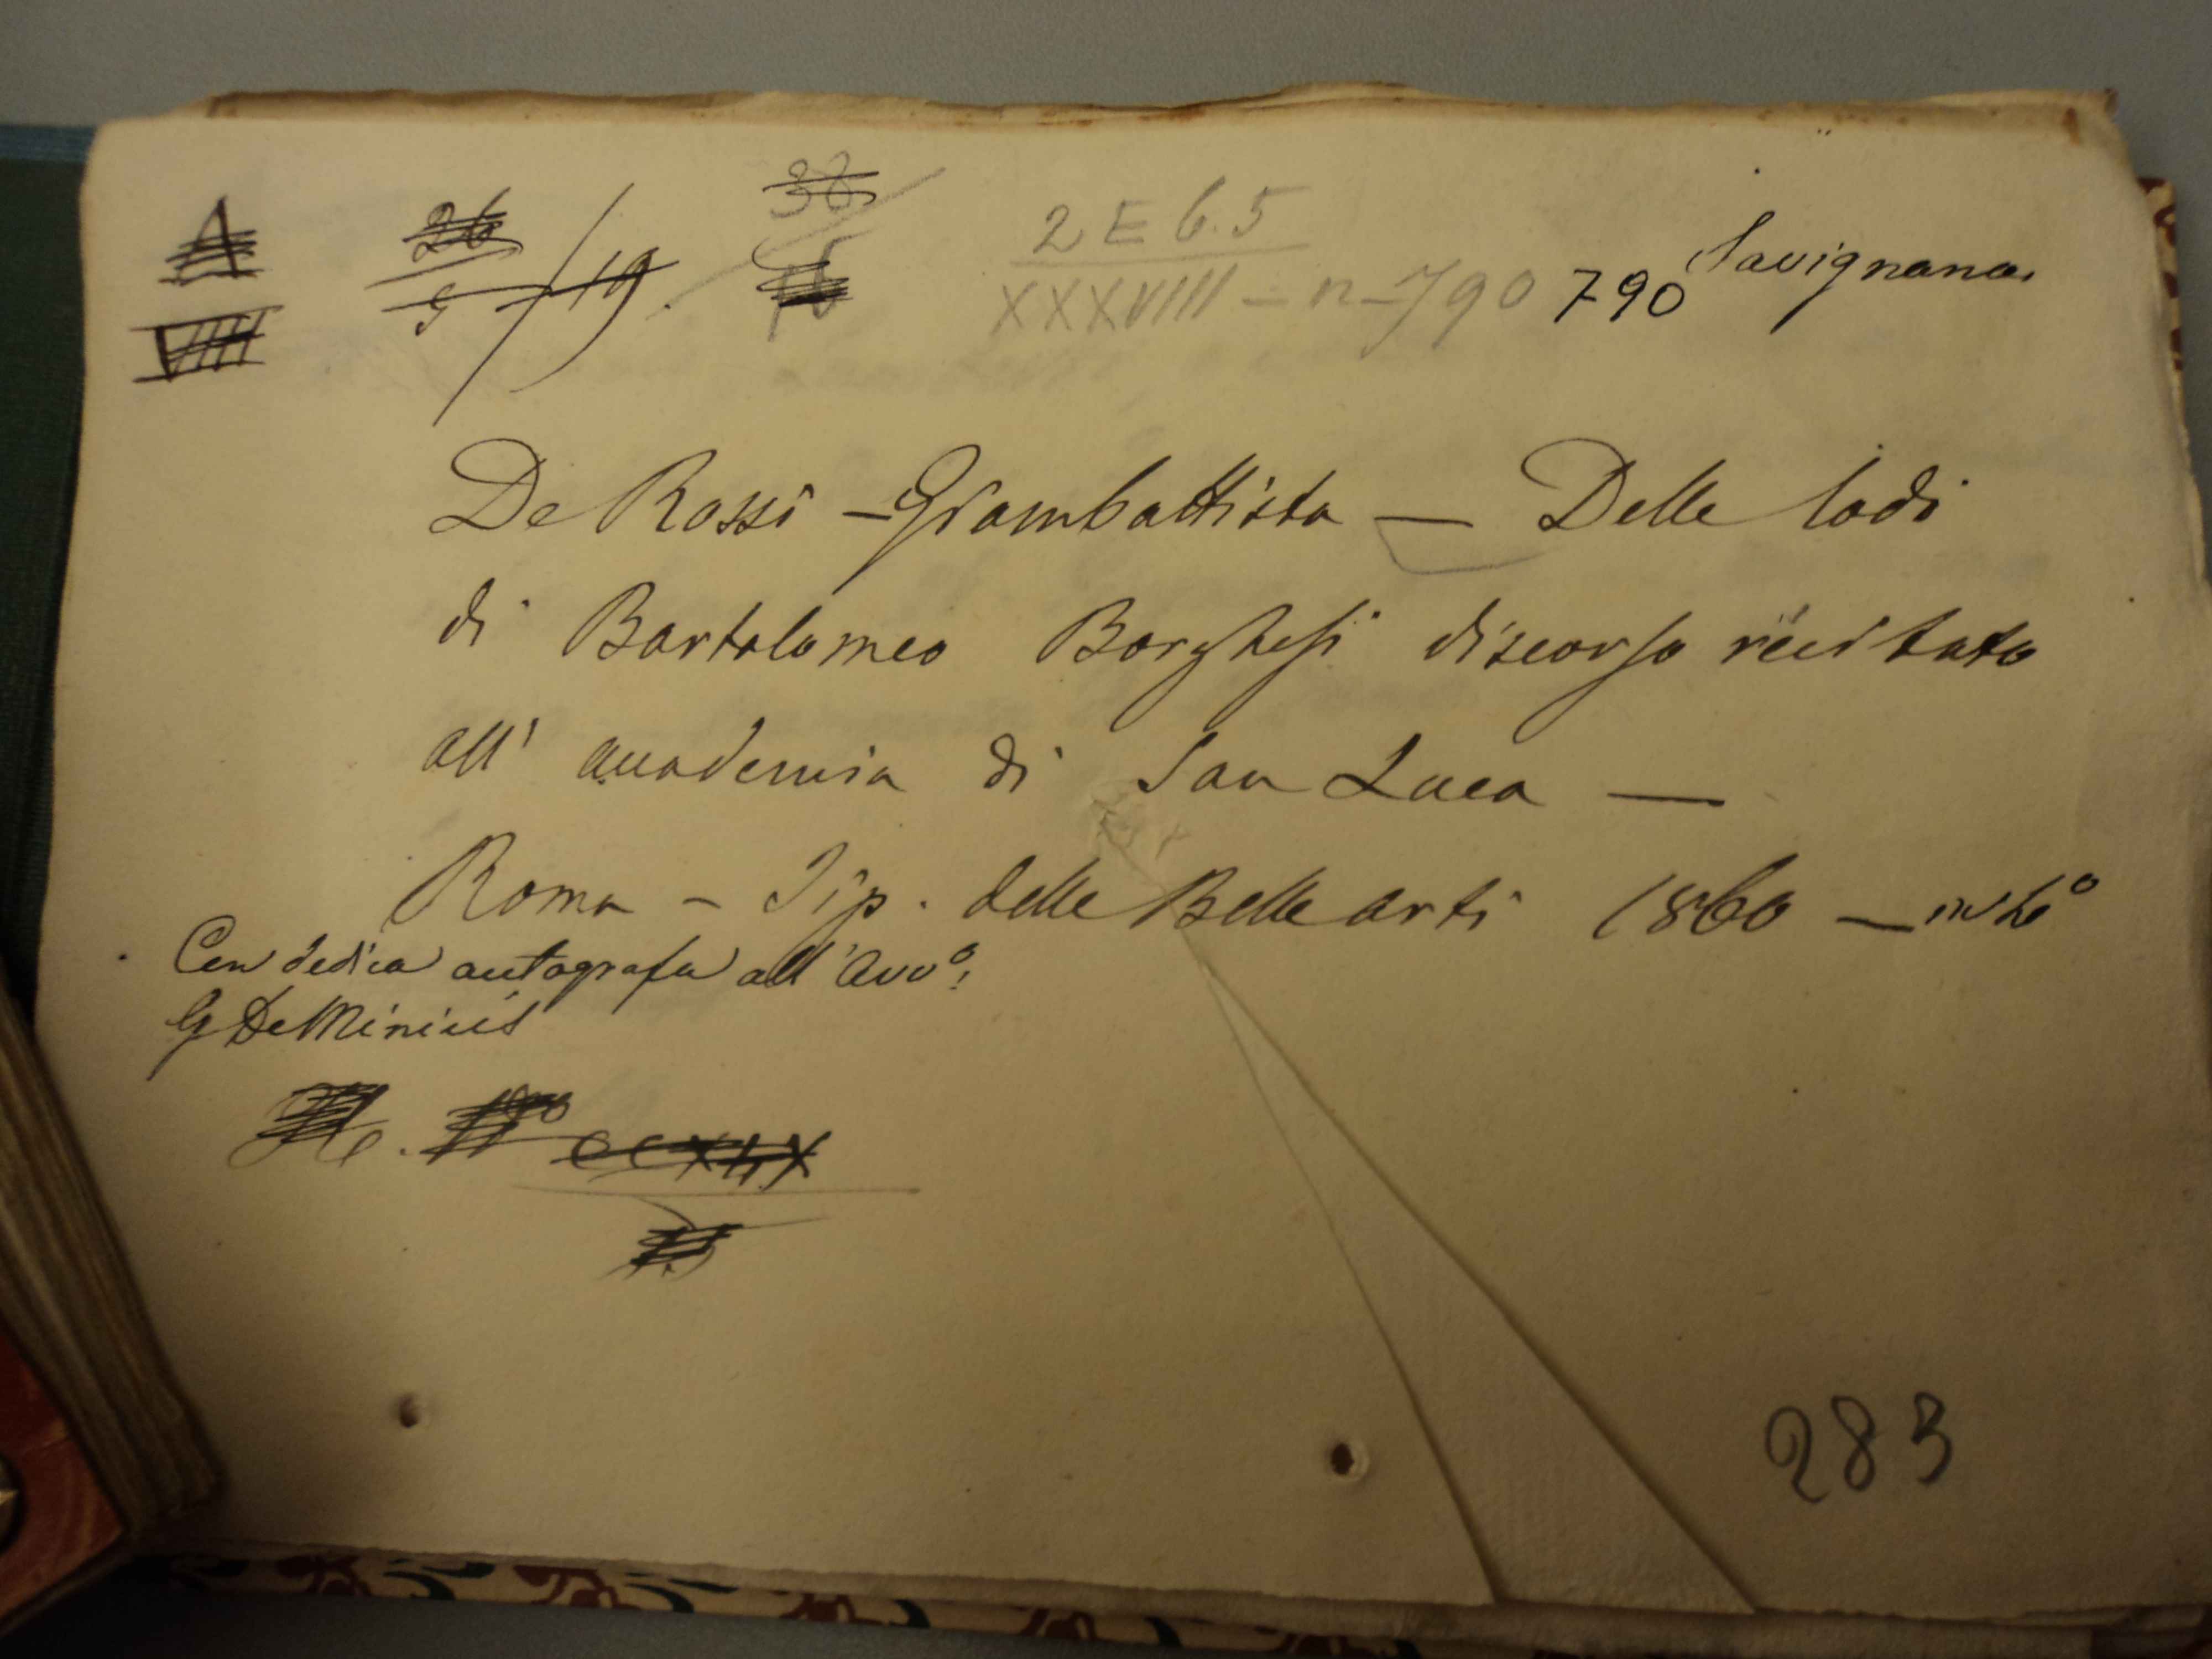 2 E 6.5
XXXVIII - n - 790 790 Savignana
De Rossi - Giambattista — Delle lodi
di Bartolomeo Borghesi discorso recitato
all' accademia di San Luca —
Roma - Tip. delle Belle arti 1860 —
Con dedica autografa all' Avv.º
G De Minicis
283